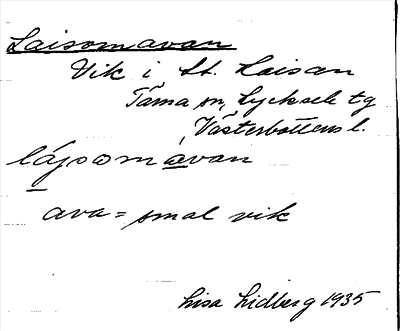 Laisomavan
Vik i St. Laisan
Tärna sn, Lycksele tg
Västerbottens l.
lájsomavan
ava = smal vik
Lisa Lidberg 1935